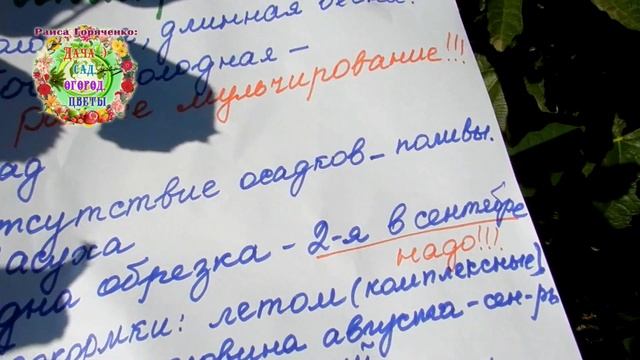 Раиса Горяченко:
ДАЧА,
САД,
ОГОРОД,
ЦВЕТЫ
длинная
мульчирование!!!
отсутствие осадков - поливы.
засуха
одна обрезка - 2-я в сентябре
надо!!!
подкормки: летом (комплексные)
половина августа - сен-рь